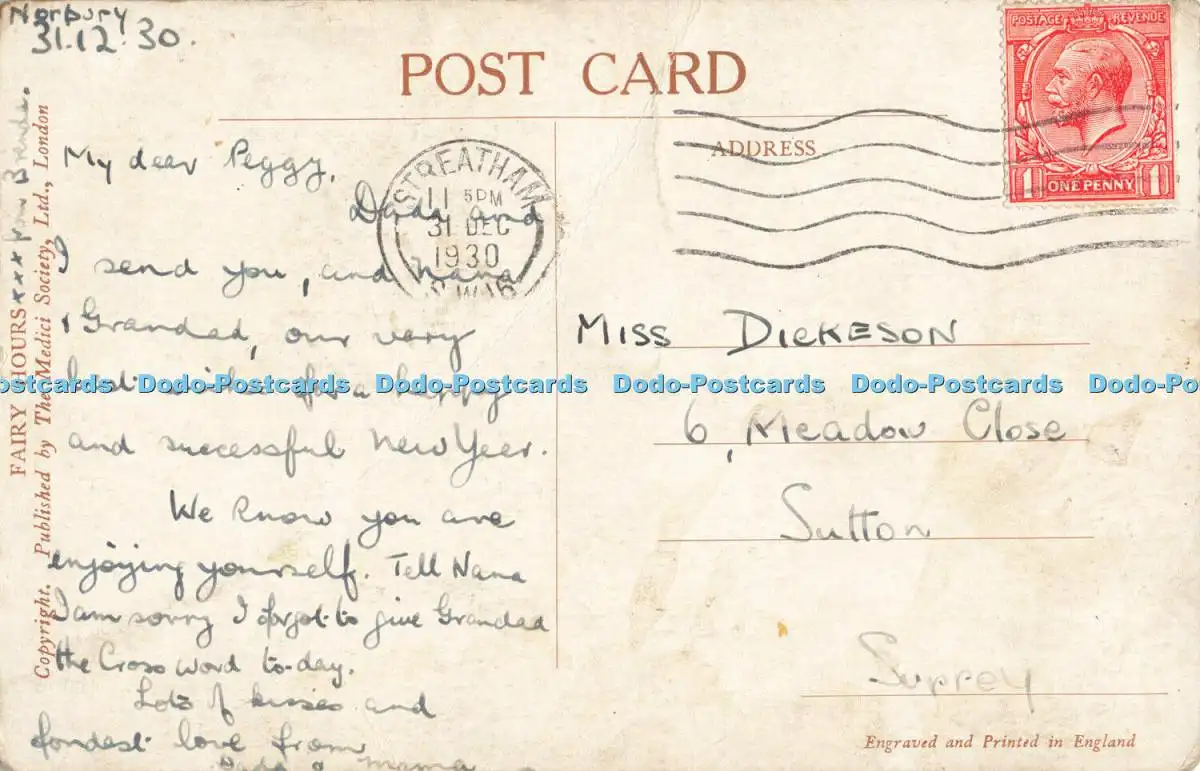 Norbury
31.12.30.
POST CARD
POSTAGE REVENUE
1 ONE PENNY 1
ADDRESS
STREATHAM
11 5PM
31 DEC
1930
S.W.16
My dear Peggy,
Dada and
I send you, and Nana
& Grandad, our very
best wishes for a happy
and successful New Year.
We know you are
enjoying yourself. Tell Nana
I am sorry I forgot to give Grandad
the Cross word to-day.
Lots of kisses and
fondest love from
Dada & Mama
xxx
FAIRY HOURS
Copyright. Published by The Medici Society, Ltd., London
MISS DICKESON
6, Meadow Close
Sutton
Surrey
Engraved and Printed in England
Dodo-Postcards Dodo-Postcards Dodo-Postcards Dodo-Postcards Dodo-Postcards Dodo-Postcards